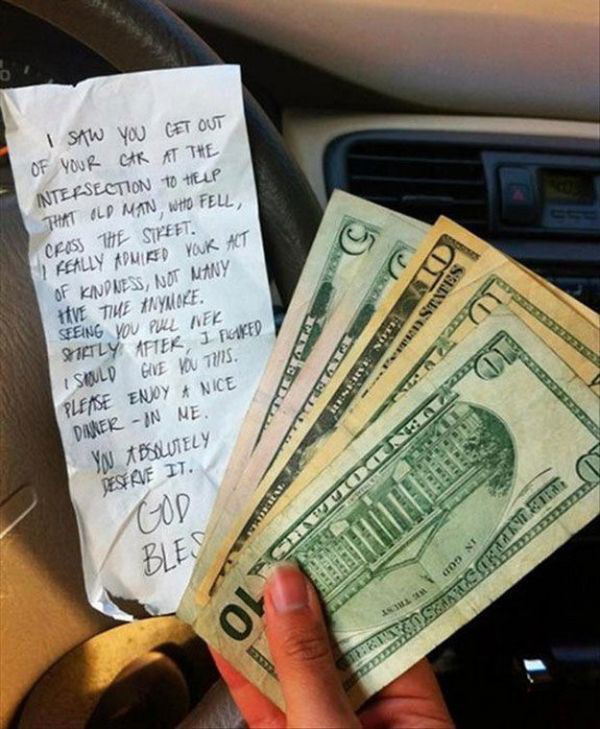 I SAW YOU GET OUT
OF YOUR CAR AT THE
INTERSECTION TO HELP
THAT OLD MAN, WHO FELL,
CROSS THE STREET.
I REALLY ADMIRED YOUR ACT
OF KINDNESS, NOT MANY
HAVE TIME ANYMORE.
SEEING YOU PULL OVER
SHORTLY AFTER, I FIGURED
I SHOULD GIVE YOU THIS.
PLEASE ENJOY A NICE
DINNER - ON ME.
YOU ABSOLUTELY
DESERVE IT.
GOD
BLES
5
5
10
10
10
IN GOD
WE TRUST
THE UNITED STATES OF AMERICA